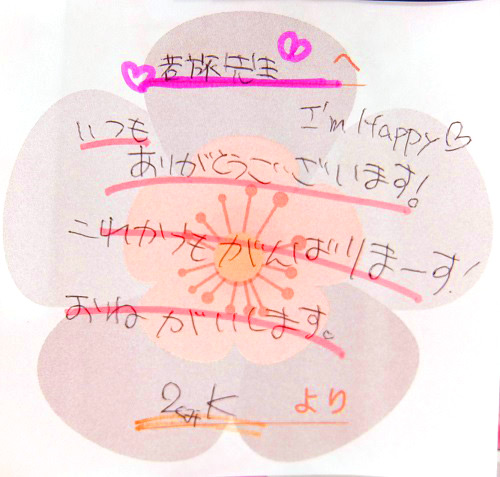 若旅先生へ
I'm Happy♡
いつも
ありがとうございます!
これからもがんばりまーす!
おねがいします。
2くみK より